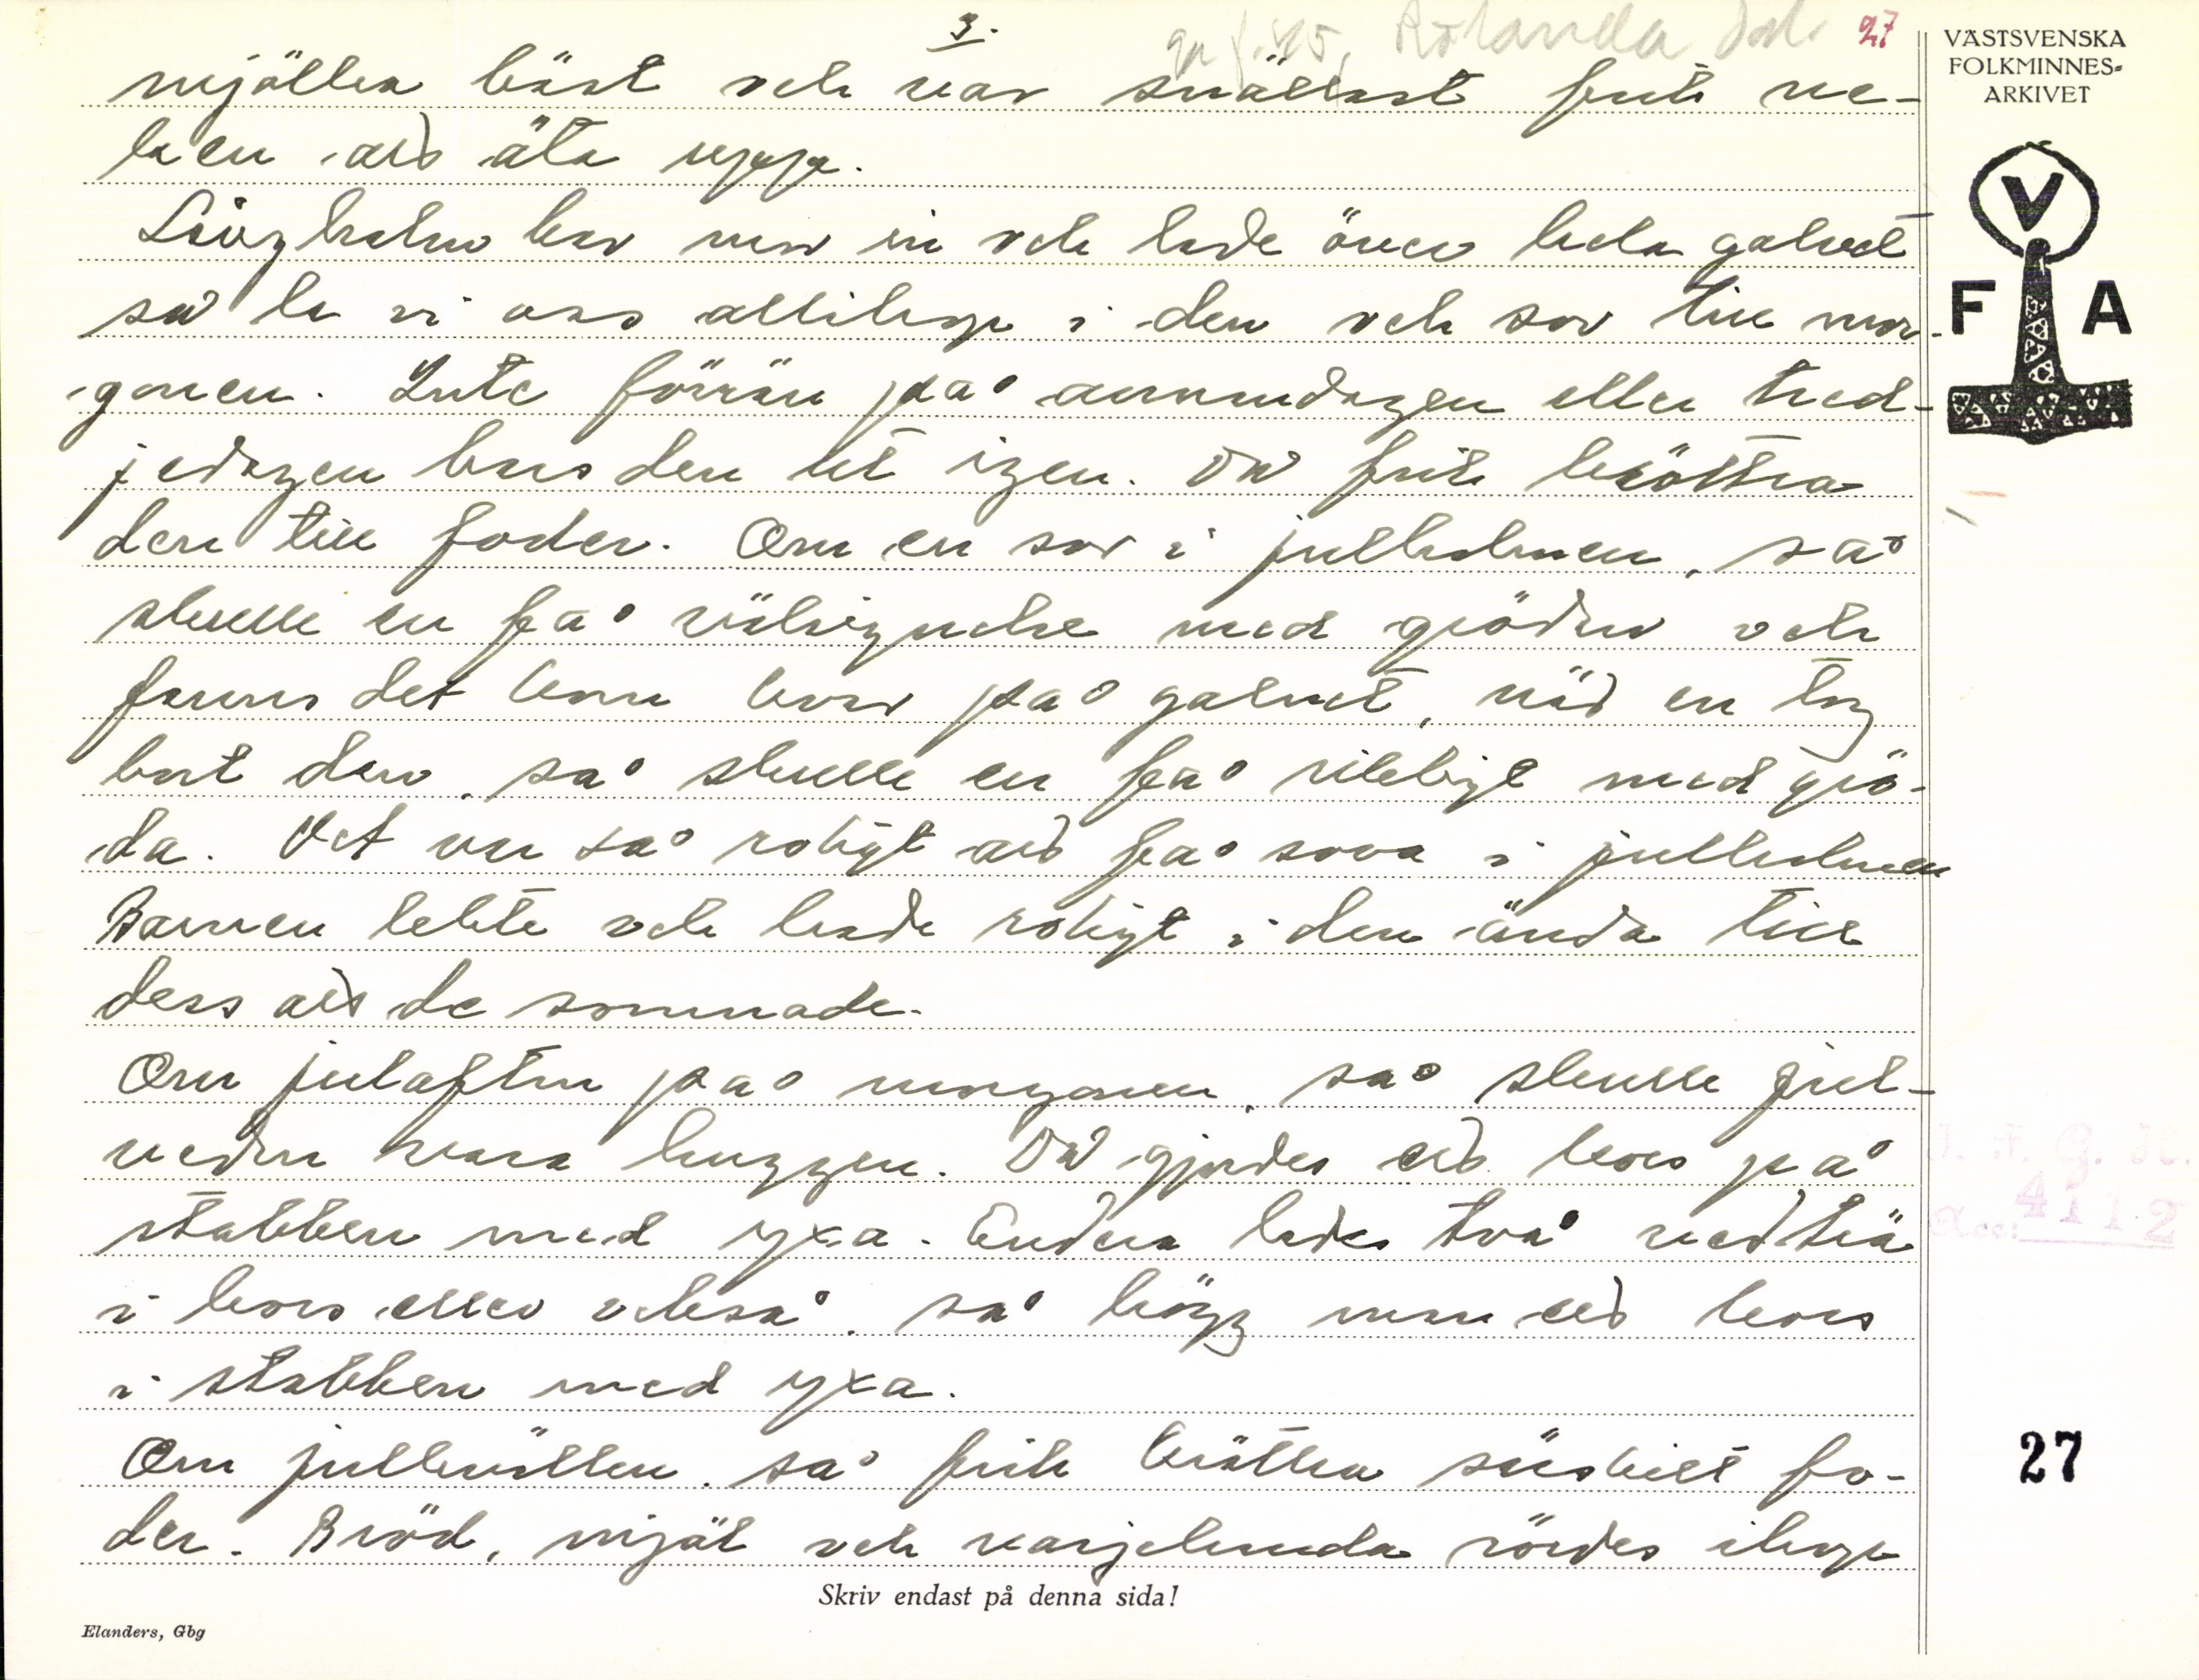 3.
Rölanda Dal. 27
mjölka bäst och var snällast fick ve-
ken att äta upp.
Långhalm bar man in och lade över hela golvet
så la vi oss allihop i den och sov till mor-
gonen. Inte förrän på annandagen eller tred-
jedagen bars den ut igen. Då fick kröttra
den till foder. Om en sov i julhalmen, så
skulle en få välsignelse med grödan och
fanns det korn kvar på golvet, när en tog
bort den, så skulle en få rikligt med grö-
da. Det var så roligt att få sova i julhalmen
Barnen lekte och hade roligt i den ända till
dess att de somnade.
Om julafton på morgonen, så skulle jul-
veden vara huggen. Då gjordes ett kors på
stabben med yxa. Endera lades två vedträ
i kors eller också, så högg man ett kors
i stabben med yxa.
Om julkvällen, så fick kröttra särskilt fo-
der. Bröd, mjöl och varjehanda rördes ihop
Skriv endast på denna sida!
Elanders, Gbg
VÄSTSVENSKA
FOLKMINNES-
ARKIVET
V
F A
Acc: 4112
27